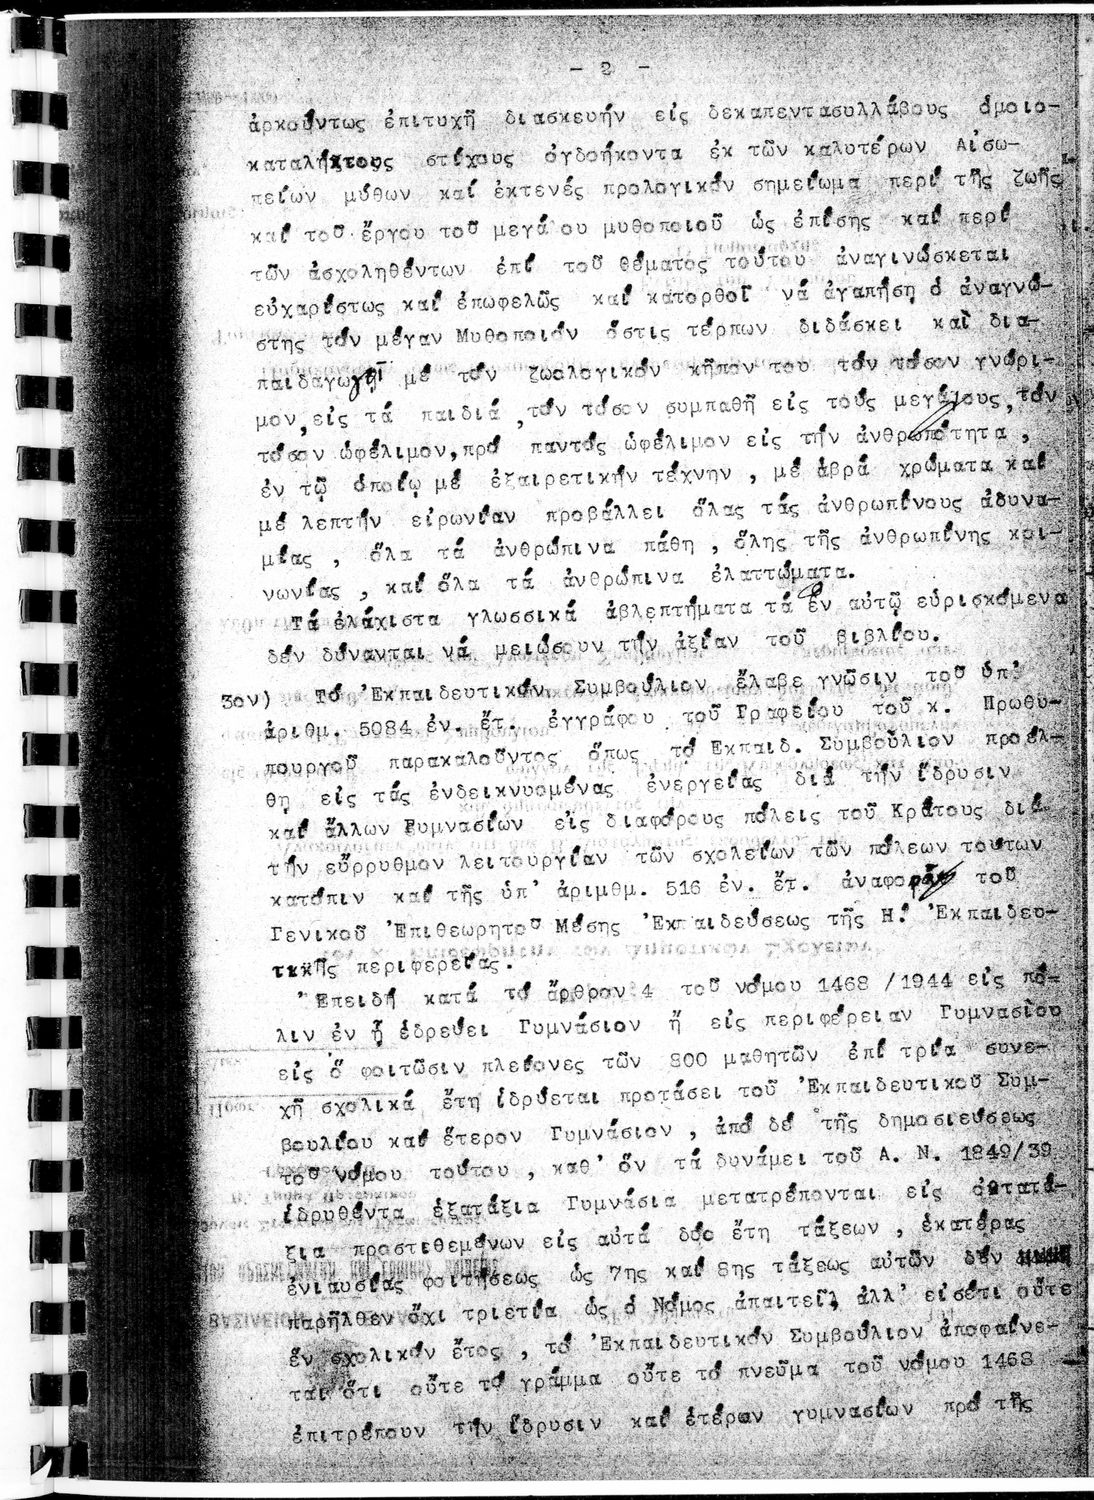 - 2 -
ἀρκούντως ἐπιτυχῆ διασκευήν εἰς δεκαπεντασυλλάβους ὁμοιο-
καταλήκτους στίχους ὀγδοήκοντα ἐκ τῶν καλυτέρων Αἰσω-
πείων μύθων καί ἐκτενές προλογικόν σημείωμα περί τῆς ζωῆς
καί τοῦ ἔργου τοῦ μεγά ου μυθοποιοῦ ὡς ἐπίσης καί περί
τῶν ἀσχοληθέντων ἐπί τοῦ θέματος τούτου ἀναγινώσκεται
εὐχαρίστως καί ἐπωφελῶς καί κατορθοῖ νά ἀγαπήσῃ ὁ ἀναγνώ-
στης τόν μέγαν Μυθοποιόν ὅστις τέρπων διδάσκει καὶ δια-
παιδαγωγῆ μέ τόν ζωολογικόν κῆπόν του τόν τόσον γνώρι-
μον, εἰς τά παιδιά, τόν τόσον συμπαθῆ εἰς τούς μεγάλους, τόν
τόσον ὠφέλιμον, πρό παντός ὠφέλιμον εἰς τήν ἀνθρωπότητα,
ἐν τῷ ὁποίῳ μέ ἐξαιρετικήν τέχνην, μέ ἁβρά χρώματα καί
μέ λεπτήν εἰρωνίαν προβάλλει ὅλας τάς ἀνθρωπίνους ἀδυνα-
μίας, ὅλα τά ἀνθρώπινα πάθη, ὅλης τῆς ἀνθρωπίνης κοι-
νωνίας, καί ὅλα τά ἀνθρώπινα ἐλαττώματα.
Τά ἐλάχιστα γλωσσικά ἀβλεπτήματα τά ἐν αὐτῷ εὑρισκόμενα
δέν δύνανται νά μειώσουν τήν ἀξίαν τοῦ βιβλίου.
3ον) Τό Ἐκπαιδευτικόν Συμβούλιον ἔλαβε γνῶσιν τοῦ ὑπ'
ἀριθμ. 5084 ἐν. ἔτ. ἐγγράφου τοῦ Γραφείου τοῦ κ. Πρωθυ-
πουργοῦ παρακαλοῦντος ὅπως τό Ἐκπαιδ. Συμβούλιον προέλ-
θη εἰς τάς ἐνδεικνυομένας ἐνεργείας διά τήν ἵδρυσιν
καί ἄλλων Γυμνασίων εἰς διαφόρους πόλεις τοῦ Κράτους διά
τήν εὔρρυθμον λειτουργίαν τῶν σχολείων τῶν πόλεων τούτων
κατόπιν καί τῆς ὑπ' ἀριθμ. 516 ἐν. ἔτ. ἀναφορᾶς τοῦ
Γενικοῦ Ἐπιθεωρητοῦ Μέσης Ἐκπαιδεύσεως τῆς Η.' Ἐκπαιδευ-
τικῆς περιφερείας.
Ἐπειδή κατά τό ἄρθρον 4 τοῦ νόμου 1468 /1944 εἰς πό-
λιν ἐν ᾗ ἑδρεύει Γυμνάσιον ἤ εἰς περιφέρειαν Γυμνασίου
εἰς ὅ φοιτῶσιν πλείονες τῶν 800 μαθητῶν ἐπί τρία συνε-
χῆ σχολικά ἔτη ἱδρύεται προτάσει τοῦ Ἐκπαιδευτικοῦ Συμ-
βουλίου καί ἕτερον Γυμνάσιον, ἀπό δέ τῆς δημοσιεύσεως
τοῦ νόμου τούτου, καθ' ὅν τά δυνάμει τοῦ Α. Ν. 1849/39
ἱδρυθέντα ἑξατάξια Γυμνάσια μετατρέπονται εἰς ὀκτατά-
ξια προστεθεμένων εἰς αὐτά δύο ἔτη τάξεων, ἑκατέρας
ἐνιαυσίας φοιτήσεως ὡς 7ης καί 8ης τάξεως αὐτῶν δέν
παρῆλθεν ὄχι τριετία ὡς ὁ Νόμος ἀπαιτεῖ, ἀλλ' εἰσέτι οὔτε
ἕν σχολικόν ἔτος, τό Ἐκπαιδευτικόν Συμβούλιον ἀποφαίνε-
ται ὅτι οὔτε τό γράμμα οὔτε τό πνεῦμα τοῦ νόμου 1468
ἐπιτρέπουν τήν ἵδρυσιν καί ἑτέρων γυμνασίων πρό τῆς